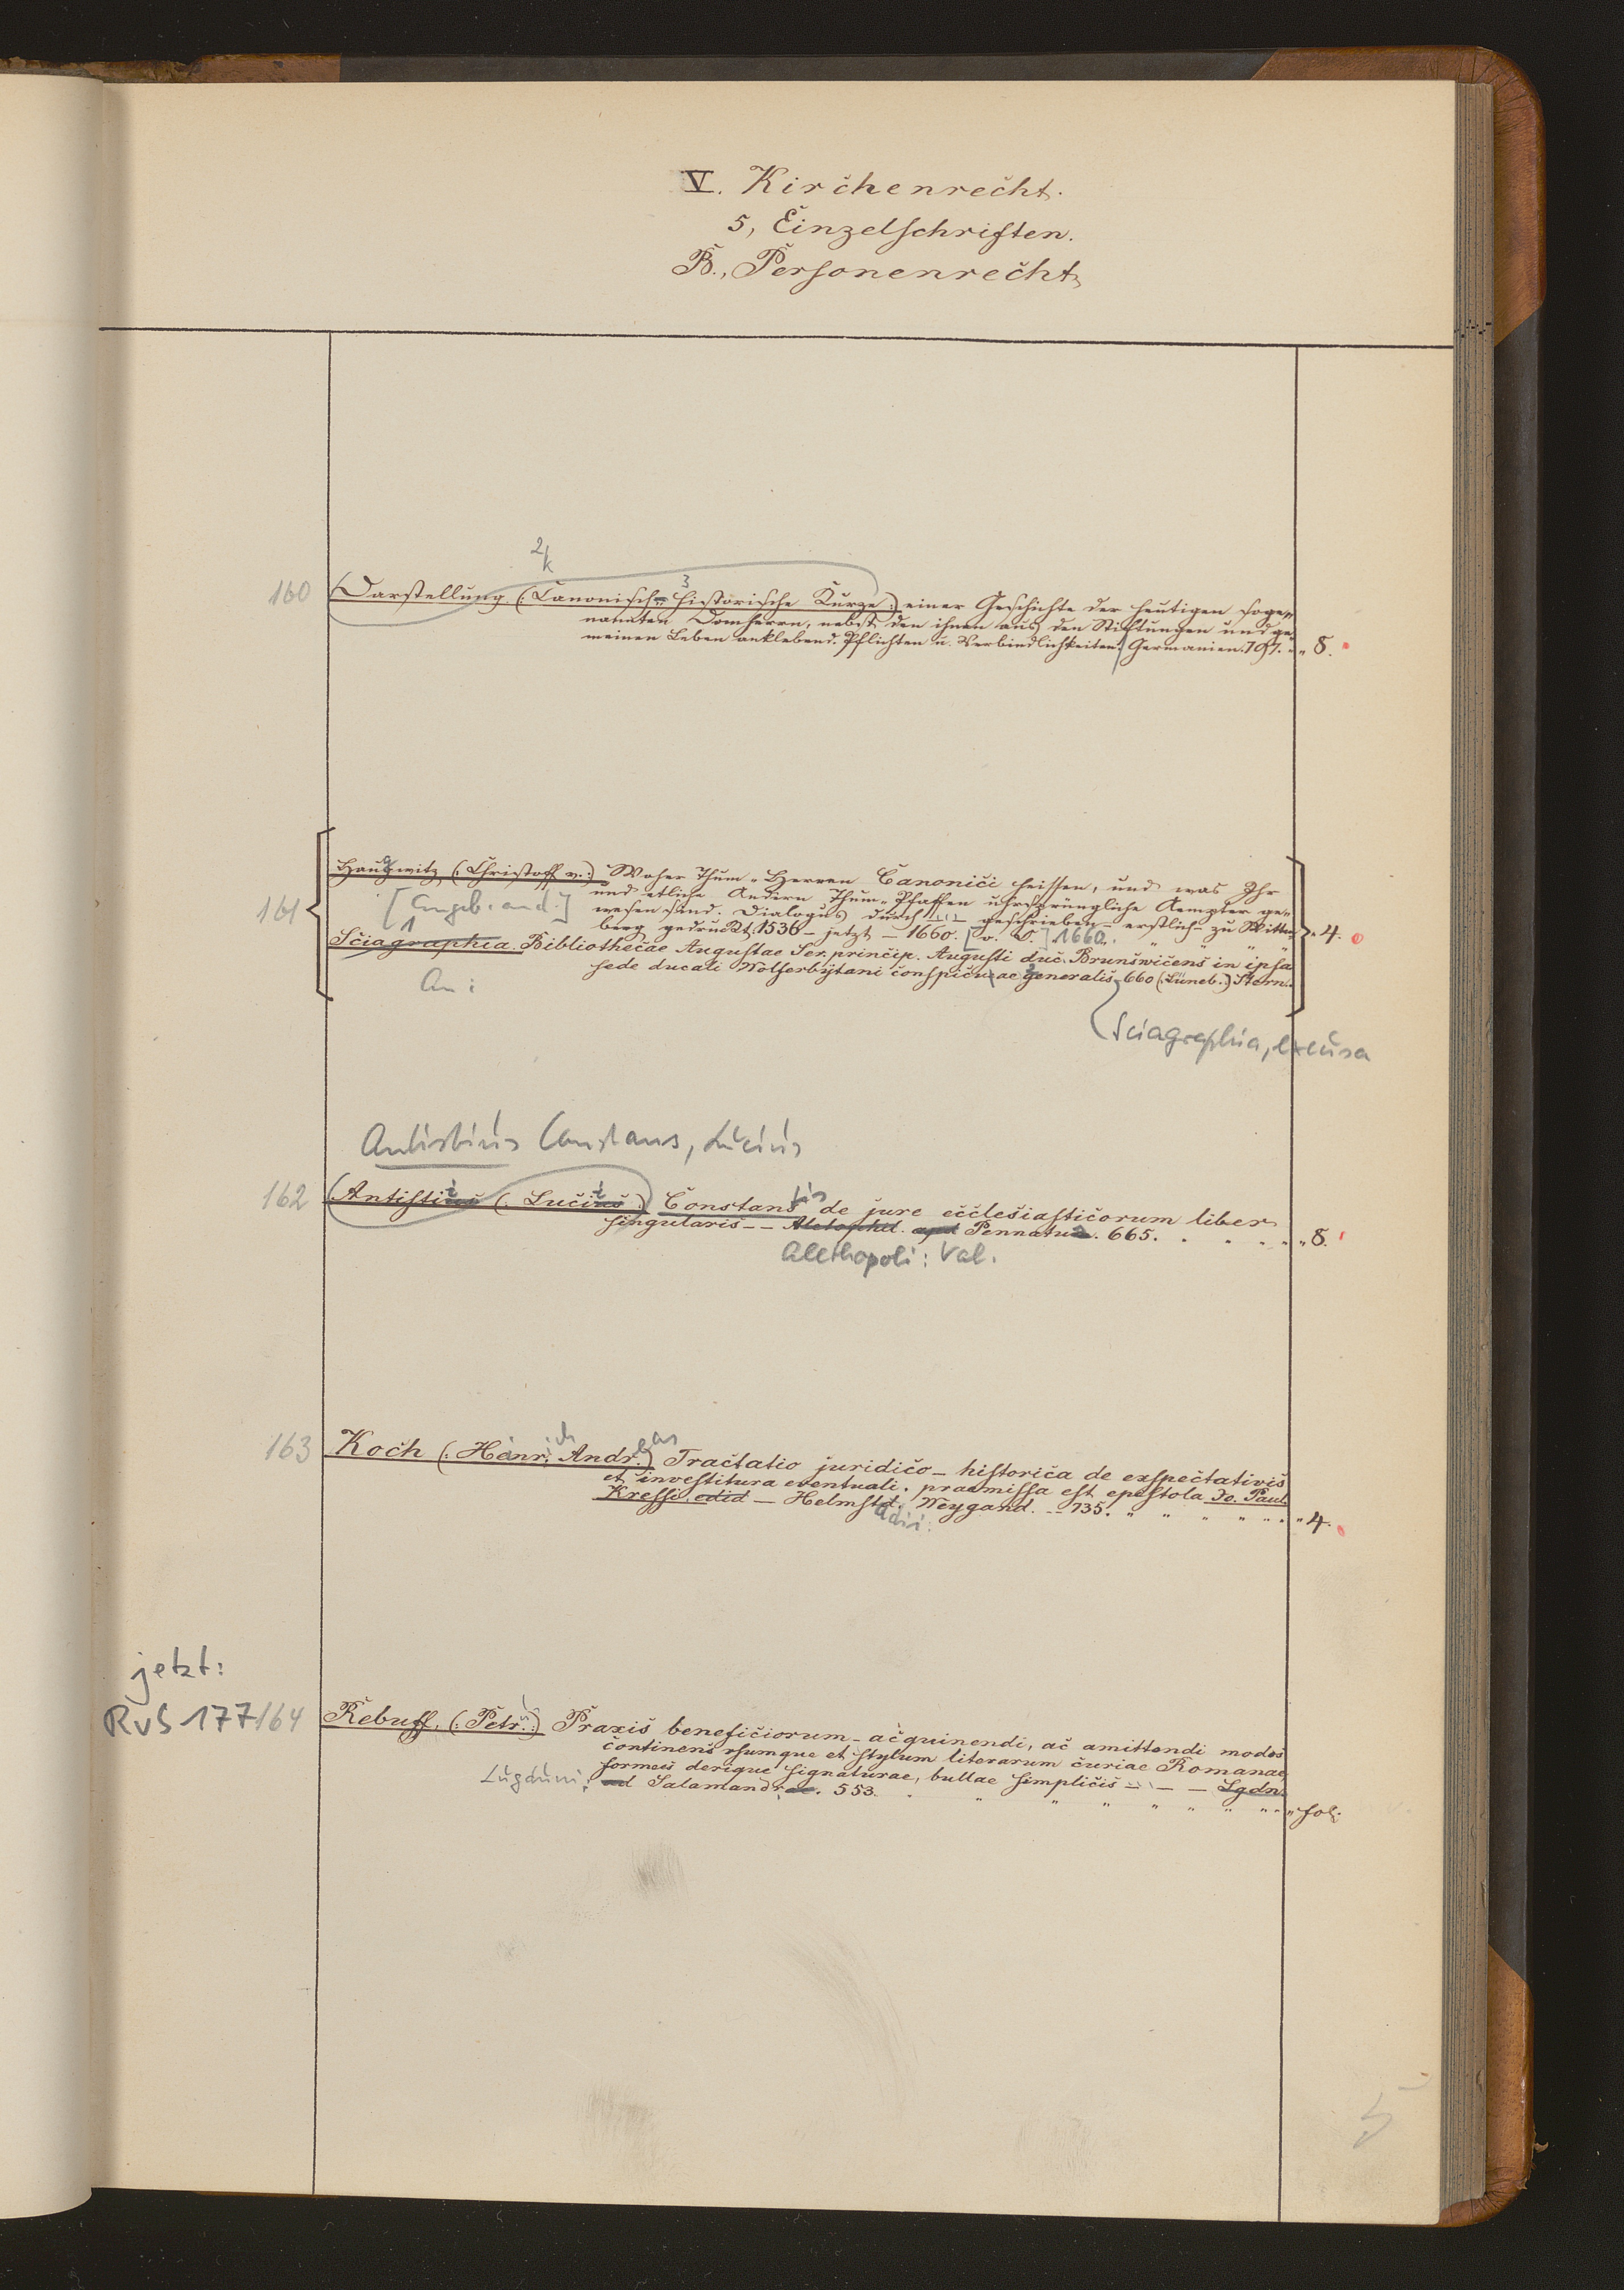 V. Kirchenrecht.
5, Einzelschriften.
B., Personenrecht
2/k
3
160 Darstellung (: Canonisch-historische Kurze :) einer Geschichte der heutigen soge„
nannten Domherrn, nebst den ihnen aus den Stiftungen und ge„
meinen Leben anklebend. Pflichten u. Verbindlichkeiten. Germanien. 797. „ „ 8.
161 Haugwitz (: Christoff v. :) Woher Thum-Herren Canonici heissen, und was Ihr
und etliche Andern Thum-Pfaffen uhrsprüngliche Aempter ge„
[Angeb. and.] wesen sind. Dialogus durch --- geschrieben - erstlich - zu Witten„
berg gedruckt 1536 - jetzt - 1660. [o. O.] 1660. „ „ „ 4.
1
Sciagraphia Bibliothecae Augustae Ser. princip. Augusti duc. Brunswicens in ipsa
sede ducali Wolferbytani conspicu ac generalis 660 (: Lüneb. :) Stern.
An:
Sciagraphia, excusa
Antistius Constans, Lucius
162 Antistius (: Lucius :) Constans de jure ecclesiasticorum liber
tis
singularis -- Aletophil. apd Pennatum. 665. . . . . „ „ 8.
Alethopoli: Val.
163 Koch (: Henr. Andr. :) Tractatio juridico-historica de exspectativis
ich eas
et investitura eventuali. praemissa est epistola Jo. Paul
Kressi. edid - Helmstd. Weygand. -- 735. „ „ „ „ „ . „ 4.
adii:
jetzt:
RvS 177 164 Rebuff. (: Petr. :) Praxis beneficiorum - acquirendi, ac amittendi modos
continens usumque et stylum literarum curiae Romanae,
formas derique signaturae, bullae simplicis --- - - Lgdn.
Lugduni: ad Salamandrae. 553. . „ „ „ „ „ „ „ . „ fol.
5